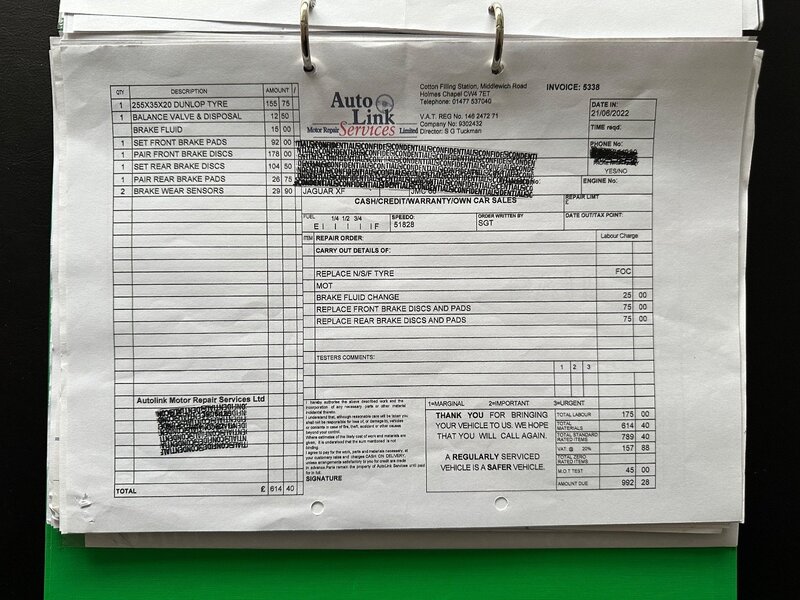 QTY DESCRIPTION AMOUNT /
1 255X35X20 DUNLOP TYRE 155 75
1 BALANCE VALVE & DISPOSAL 12 50
BRAKE FLUID 15 00
1 SET FRONT BRAKE PADS 92 00
1 PAIR FRONT BRAKE DISCS 178 00
1 SET REAR BRAKE DISCS 104 50
1 PAIR REAR BRAKE PADS 26 75
2 BRAKE WEAR SENSORS 29 90
Autolink Motor Repair Services Ltd
TOTAL £ 614 40
Auto Link
Motor Repair Services Limited
Cotton Filling Station, Middlewich Road
Holmes Chapel CW4 7ET
Telephone: 01477 537040
V.A.T. REG No. 146 2472 71
Company No: 9302432
Director: S G Tuckman
INVOICE: 5338
DATE IN:
21/06/2022
TIME reqd:
PHONE No:
YES/NO
ENGINE No:
JAGUAR XF
CASH/CREDIT/WARRANTY/OWN CAR SALES
REPAIR LIMIT
£
FUEL 1/4 1/2 3/4
E I I I I F
SPEEDO:
51828
ORDER WRITTEN BY
SGT
DATE OUT/TAX POINT:
ITEM REPAIR ORDER: Labour Charge
CARRY OUT DETAILS OF:
REPLACE N/S/F TYRE FOC
MOT
BRAKE FLUID CHANGE 25 00
REPLACE FRONT BRAKE DISCS AND PADS 75 00
REPLACE REAR BRAKE DISCS AND PADS 75 00
TESTERS COMMENTS:
1 2 3
1=MARGINAL 2=IMPORTANT 3=URGENT
I hereby authorise the above described work and the
incorporation of any necessary parts or other material
incidental thereto.
I understand that, although reasonable care will be taken you
shall not be responsible for loss of, or damage to, vehicles
or contents in case of fire, theft, accident or other causes
beyond your control.
Where estimates of the likely cost of work and materials are
given, it is understood that the sums mentioned is not
binding.
I agree to pay for the work, parts and materials necessary, at
your customary rates and charges CASH ON DELIVERY,
unless arrangements satisfactory to you for credit are made
in advance.Parts remain the property of AutoLink Services until paid
for in full.
SIGNATURE
THANK YOU FOR BRINGING
YOUR VEHICLE TO US. WE HOPE
THAT YOU WILL CALL AGAIN.
A REGULARLY SERVICED
VEHICLE IS A SAFER VEHICLE.
TOTAL LABOUR 175 00
TOTAL MATERIALS 614 40
TOTAL STANDARD RATED ITEMS 789 40
VAT @ 20% 157 88
TOTAL ZERO RATED ITEMS
M.O.T TEST 45 00
AMOUNT DUE 992 28